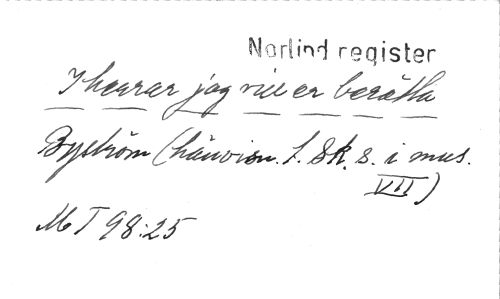 Norlind register
I herrar jag vill er berätta
Byström (hänvisn. t. Sk. s. i mus.
VII)
MT 98:25